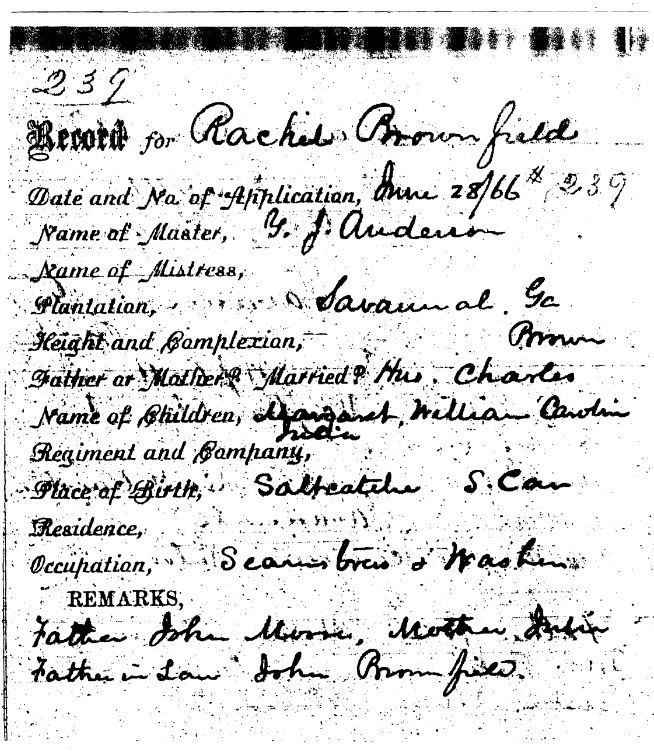 239
Record for Rachel Brownfield
Date and No. of Application, June 28/66 # 239
Name of Master, G. J. Anderson
Name of Mistress,
Plantation, Savannah. Ga
Height and Complexion, Brown
Father or Mother? Married? Hus. Charles
Name of Children, Margaret, William Carolin
Regiment and Company,
Place of Birth, Saltcatche S. Car
Residence,
Occupation, Seamstress & Washer
REMARKS,
Father John Moore, Mother
Father in Law John Brownfield.